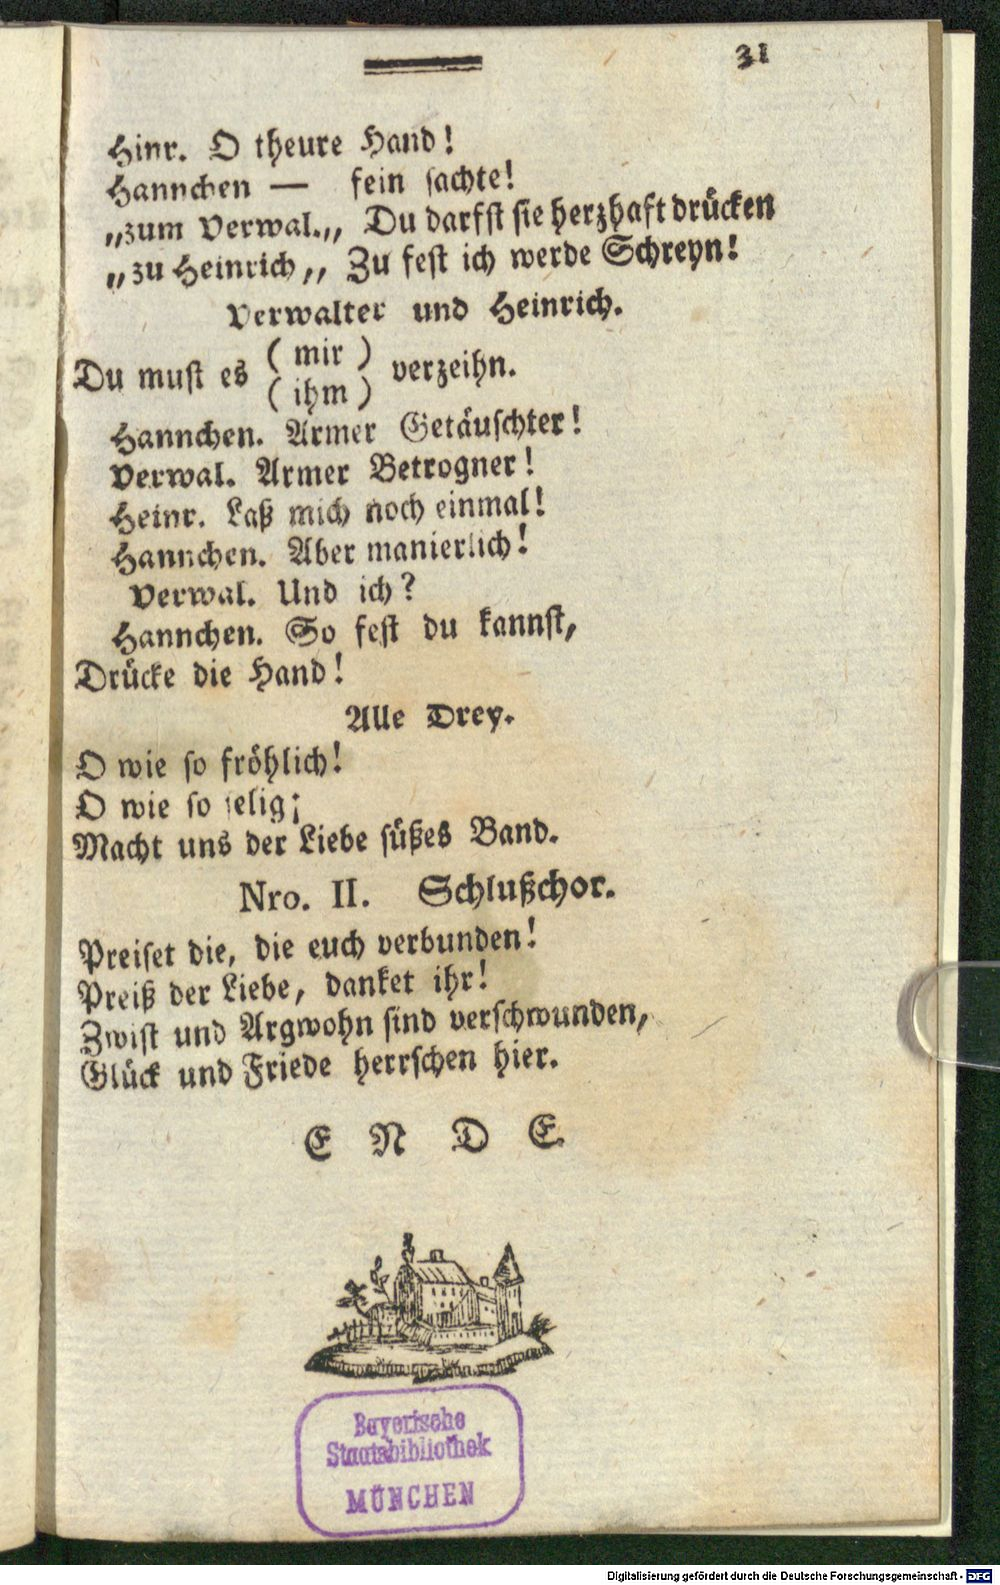 31
Hinr. O theure Hand!
Hannchen — fein sachte!
„zum Verwal.„ Du darfst sie herzhaft drücken
„zu Heinrich„ Zu fest ich werde Schreyn!
Verwalter und Heinrich.
Du must es ( mir ) verzeihn.
( ihm )
Hannchen. Armer Getäuschter!
Verwal. Armer Betrogner!
Heinr. Laß mich noch einmal!
Hannchen. Aber manierlich!
Verwal. Und ich?
Hannchen. So fest du kannst,
Drücke die Hand!
Alle Drey.
O wie so fröhlich!
O wie so selig;
Macht uns der Liebe süßes Band.
Nro. II. Schlußchor.
Preiset die, die euch verbunden!
Preiß der Liebe, danket ihr!
Zwist und Argwohn sind verschwunden,
Glück und Friede herrschen hier.
E N D E
Bayerische
Staatsbibliothek
MÜNCHEN
Digitalisierung gefördert durch die Deutsche Forschungsgemeinschaft - DFG